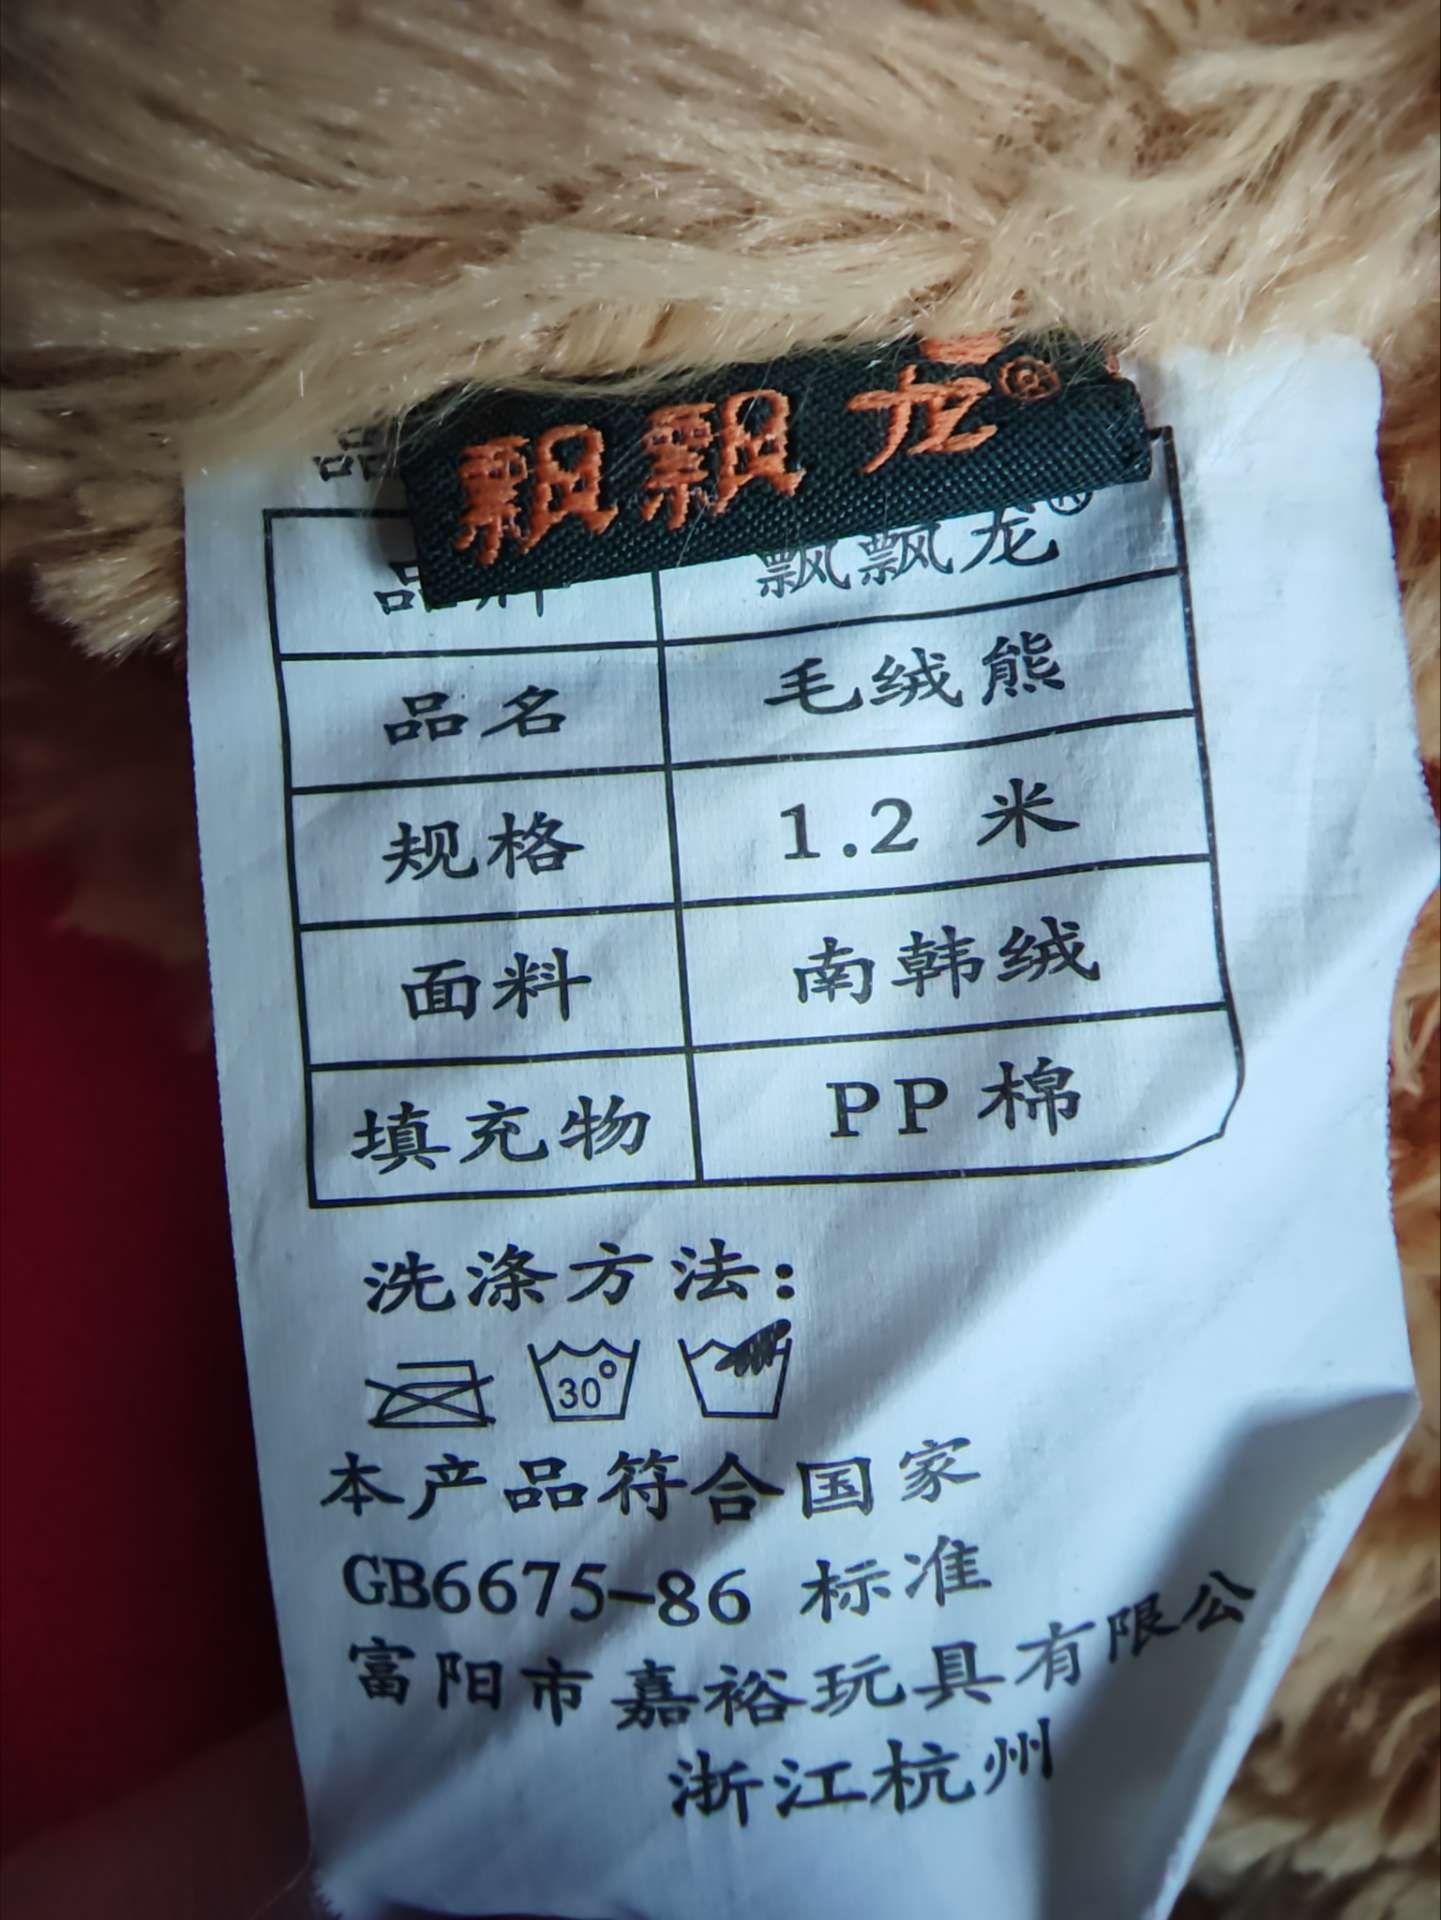 飘飘龙®
品
品牌 飘飘龙®
品名 毛绒熊
规格 1.2 米
面料 南韩绒
填充物 PP棉
洗涤方法：
30°
本产品符合国家
GB6675-86 标准
富阳市嘉裕玩具有限公
浙江杭州